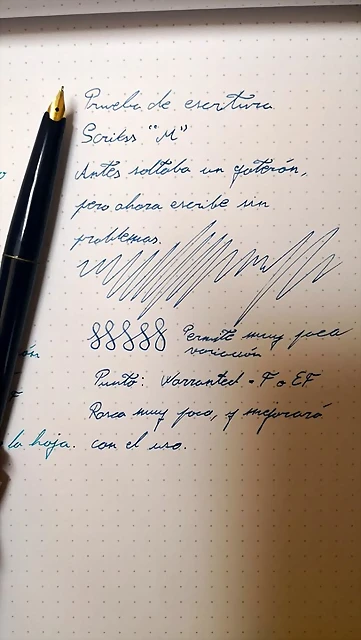 Prueba de escritura
Scrikss "M"
Antes soltaba un goterón,
pero ahora escribe sin
problemas.
Permite muy poca
variación
Punto: Warranted = F o EF
Rasca muy poco, y mejorará
la hoja. con el uso.